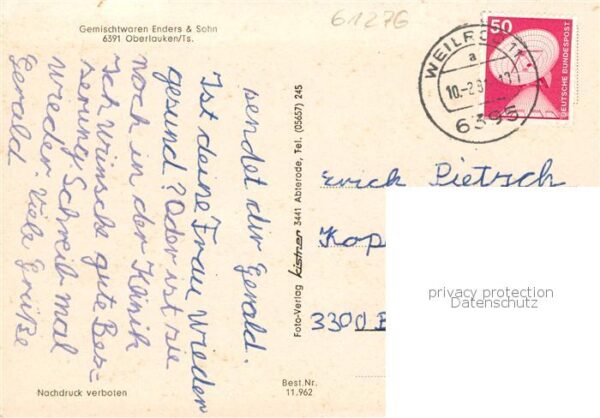 Gemischtwaren Enders & Sohn
6391 Oberlauken/Ts.
61276
50
DEUTSCHE BUNDESPOST
WEILROD 11
a
10.-2.81
6395
sendet dir Gerald.
Ist deine Frau wieder
gesund? Oder ist sie
noch in der Klinik
Ich wünsche gute Bes-
serung. Schreib mal
wieder. Viele Grüße
Gerald
Foto-Verlag kistner 3441 Abterode, Tel. (05657) 245
Pietsch
3300
privacy protection
Datenschutz
Nachdruck verboten
Best.Nr.
11.962